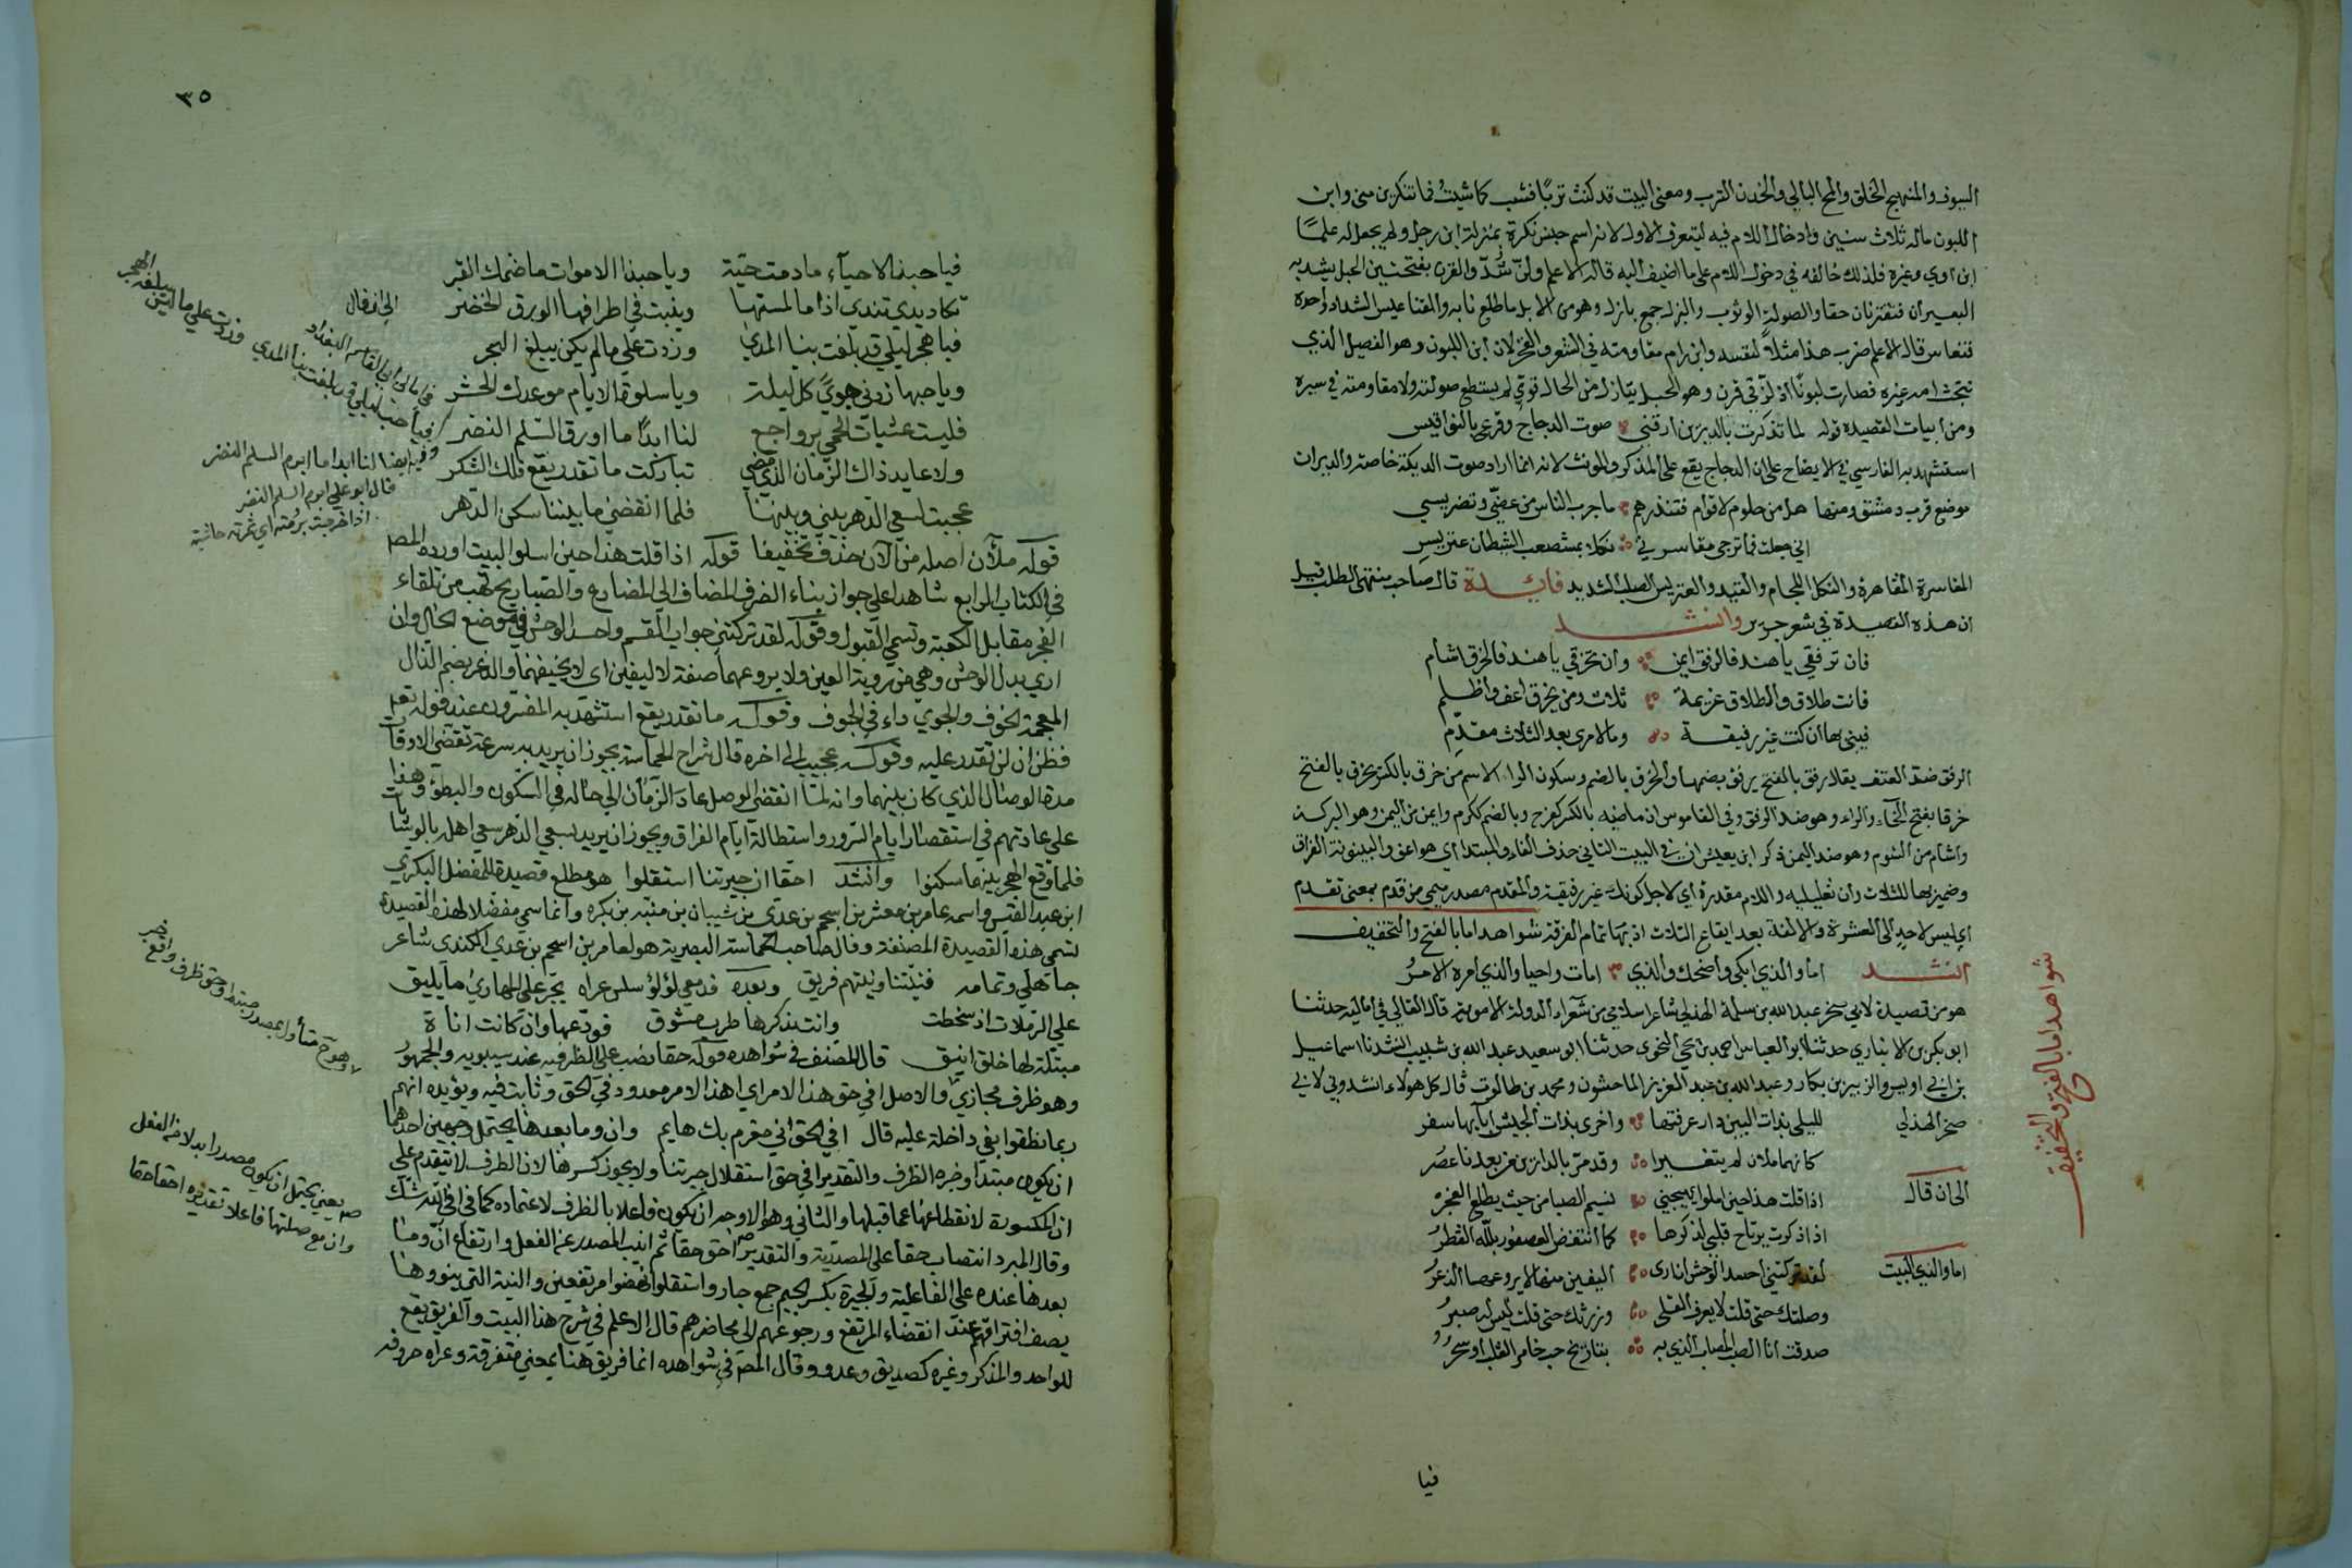 السيوف والمنهج الخلق والمح البالي والخدن الترب ومعنى البيت قد كنت تربا فشب كما شيت فما تنكرين مني وابن
اللبون ماله ثلاث سنين وادخال اللام فيه ليتعرف الاول لانه اسم جنس نكرة بمنزلة ابن رجل ولم يجعل له علما
ابن اوي وغيره فلذلك خالفه في دخول اللام على ما اضيف اليه قاله الاعلم ولز شد والقرن بفتحتين الحبل يشد به
البعيران فتقترنان حقا والصولة الوثوب والبزل جمع بازل وهو من الابل ما طلع نابه والقناعيس الشداد واحده
قنعاس قال الاعلم ضرب هذا مثلا لنفسه ولمن رام مقاومته في الشعر والفخر لان ابن اللبون وهو الفصيل الذي
نتجت امه غيره فصارت لبونا اذ لز في قرن وهو الحبل ببازل من الجمال قوي لم يستطع صولته ولا مقاومته في سيره
ومن ابيات القصيدة قوله لما تذكرت بالديرين ارقني صوت الدجاج وقرع بالنواقيس
استشهد به الفارسي في الايضاح على ان الدجاج يقع على المذكر والمونث لانه انما اراد صوت الديكة خاصة والديران
موضع قرب دمشق ومنها هل من حلوم لاقوام فتنذرهم ما جرب الناس من عضي وتضريسي
اني جعلت فما ترجى مقاسرتي نكلا بمستصعب الشيطان عتريس
المقاسرة المقاهرة والنكل اللجام والقيد والعتريس الصلب الشديد فايدة قال صاحب منتهى الطلب قيل
ان هذه القصيدة في شعر جرير وانشد
فان ترفقي يا هند فالرفق ايمن وان تخرقي يا هند فالخرق اشام
فانت طلاق والطلاق عزيمة ثلاث ومن يخرق اعق واظلم
فبيني بها ان كنت غير رفيقة وما لامرئ بعد الثلاث مقدم
الرفق ضد العنف يقال رفق بالفتح يرفق بضمها والخرق بالضم وسكون الراء الاسم من خرق بالكسر يخرق بالفتح
خرقا بفتح الخاء والراء وهو ضد الرفق وفي القاموس ان ماضيه بالكسر كفرح وبالضم ككرم وايمن من اليمن وهو البركة
واشام من الشوم وهو ضد اليمن ذكر ابن يعيش ان في البيت الثاني حذف الفاء والمبتدا اي هو اعق والبينونة الفراق
وضمير بها للثلاث وان تعليلية واللام مقدرة اي لاجل كونك غير رفيقة والمقدم مصدر ميمي من قدم بمعنى تقدم
اي ليس لاحد الى العشرة والالفة بعد ايقاع الثلاث اذ بها تمام الفرقة شواهد اما بالفتح والتخفيف
شواهد اما بالفتح والتخفيف
انشد اما والذي ابكى واضحك والذي امات واحيا والذي امره الامر
هو من قصيدة لابي صخر عبد الله بن سلمة الهذلي شاعر اسلامي من شعراء الدولة الاموية قال القالي في اماليه حدثنا
ابو بكر بن الانباري حدثنا ابو العباس احمد بن يحي النحوي حدثنا ابو سعيد عبد الله بن شبيب انشدنا اسماعيل
بن ابي اويس والزبير بن بكار وعبد الله بن عبد العزيز الماجشون ومحمد بن طالوت قال كل هولاء انشدوني لابي
صخر الهذلي لليلى بذات البين دار عرفتها واخرى بذات الجيش اياتها سفر
كانهما ملان لم يتغيرا وقد مر بالدارين من بعدنا عصر
الى ان قال اذا قلت هذا حين اسلو يهيجني نسيم الصبا من حيث يطلع الفجر
اذا ذكرت يرتاح قلبي لذكرها كما انتفض العصفور بلله القطر
اما والذي البيت لقد تركتني احسد الوحش ان ارى اليفين منها لا يروعهما الذعر
وصلتك حتى قلت لا يعرف القلى وزرتك حتى قلت ليس له صبر
صدقت انا الصب المصاب الذي به تباريح حب خامر القلب او سحر
فيا
٣٥
فيا حبذا الاحياء ما دمت حية ويا حبذا الاموات ما ضمك القبر
تكاد يدي تندى اذا ما لمستها وينبت في اطرافها الورق الخضر
فيا هجر ليلى قد بلغت بنا المدى وزدت على ما لم يكن يبلغ الهجر
ويا حبها زدني جوى كل ليلة ويا سلوة الايام موعدك الحشر
فليست عشيات الحمى برواجع لنا ابدا ما اورق السلم النضر
ولا عايد ذاك الزمان الذي مضى تباركت ما تقدر يقع فلك الشكر
عجبت لسعي الدهر بيني وبينها فلما انقضى ما بيننا سكن الدهر
قوله ملآن اصله من الآن حذف تخفيفا قوله اذا قلت هذا حين اسلو البيت اورده المص
في الكتاب الرابع شاهدا على جواز بناء الظرف المضاف الى المضارع والصبا ريح تهب من تلقاء
الفجر مقابل الكعبة وتسمى القبول وقوله لقد تركتني جواب القسم واحسد الوحش في موضع الحال وان
ارى بدل الوحش وهي من روية العين ولا يروعهما صفة لاليفين اي لا يخيفهما والذعر بضم الذال
المعجمة الخوف والجوى داء في الجوف وقوله ما تقدر يقع استشهد به المفسرون عند قوله تعم
فظن ان لن تقدر عليه وقوله عجبت الى اخره قال شراح الحماسة يجوز ان يريد به سرعة تقضي الاوقات
مدة الوصال الذي كان بينهما وانه لما انقضى الوصل عاد الزمان الى حاله في السكون والبطؤ وهذا
على عادتهم في استقصار ايام السرور واستطالة ايام الفراق ويجوز ان يريد بسعي الدهر سعي اهله بالوشايات
فلما وقع الهجر بينهما سكنوا وانشد احقا ان جيرتنا استقلوا هو مطلع قصيدة للمفضل البكري
ابن عبد القيس واسمه عامر بن معشر بن اسحم بن عدي بن شيبان بن منبه بن بكره وانما سمي مفضلا لهذه القصيدة
تسمى هذه القصيدة المصنفة وقال صاحب الحماسة البصرية هو لعامر بن اسحم بن عدي الكندي شاعر
جاهلي وتمامه فنيتنا ونيتهم فريق وبعده فدمعي لؤلؤ سلس عراه يخر على المهاوي ما يليق
على الربلات اذ شحطت وانت بذكرها طرب مشوق فودعها وان كانت اناة
مبتلة لها خلق انيق قال المصنف في شواهده قوله حقا نصب على الظرفية عند سيبويه والجمهور
وهو ظرف مجازي والاصل افي حق هذا الامر اي اهذا الامر معدود في الحق وثابت فيه ويؤيده انهم
ربما نطقوا بفي داخلة عليه قال افي الحق اني مغرم بك هايم وان وما بعدها يحتمل وجهين احدهما
ان يكون مبتدا وخبره الظرف والتقدير افي حق استقلال جيرتنا ولا يجوز كسرها لان الظرف لا يتقدم على
ان المكسورة لانقطاعها عما قبلها والثاني وهو الاوجه ان يكون فاعلا بالظرف لاعتماده كما في افي الله شك
وقال المبرد انتصاب حقا على المصدرية والتقدير احق حقا ثم انيب المصدر عن الفعل وارتفاع ان وما
بعدها عنده على الفاعلية والجيرة بكسر الجيم جمع جار واستقلوا نهضوا مرتفعين والنية التي ينووها
يصف افتراقهم عند انقضاء المرتفع ورجوعهم الى محاضرهم قال الاعلم في شرح هذا البيت والفريق يقع
للواحد والمذكر وغيره كصديق وعدو وقال المص في شواهده انما فريق هنا بمعنى متفرقة وعراه حروفه
الى ان قال
في امالي ابي القاسم البغداد
فيا حب ليلى قد بلغت بنا المدى وزدت على ما ليس يبلغه الهجر
وفيه ايضا لنا ابدا ما ابرم السلم النضر
قال ابو علي ابرم السلم النضر
اذا خرجت برمته اي ثمرته حاشية
وهو ح متأول بمصدر مبتدا وحق ظرف واقع خبر
صح يعني يحتمل ان يكون مصدرا بدلا من الفعل
وان مع صلتها فاعلا تقديره احق احقا